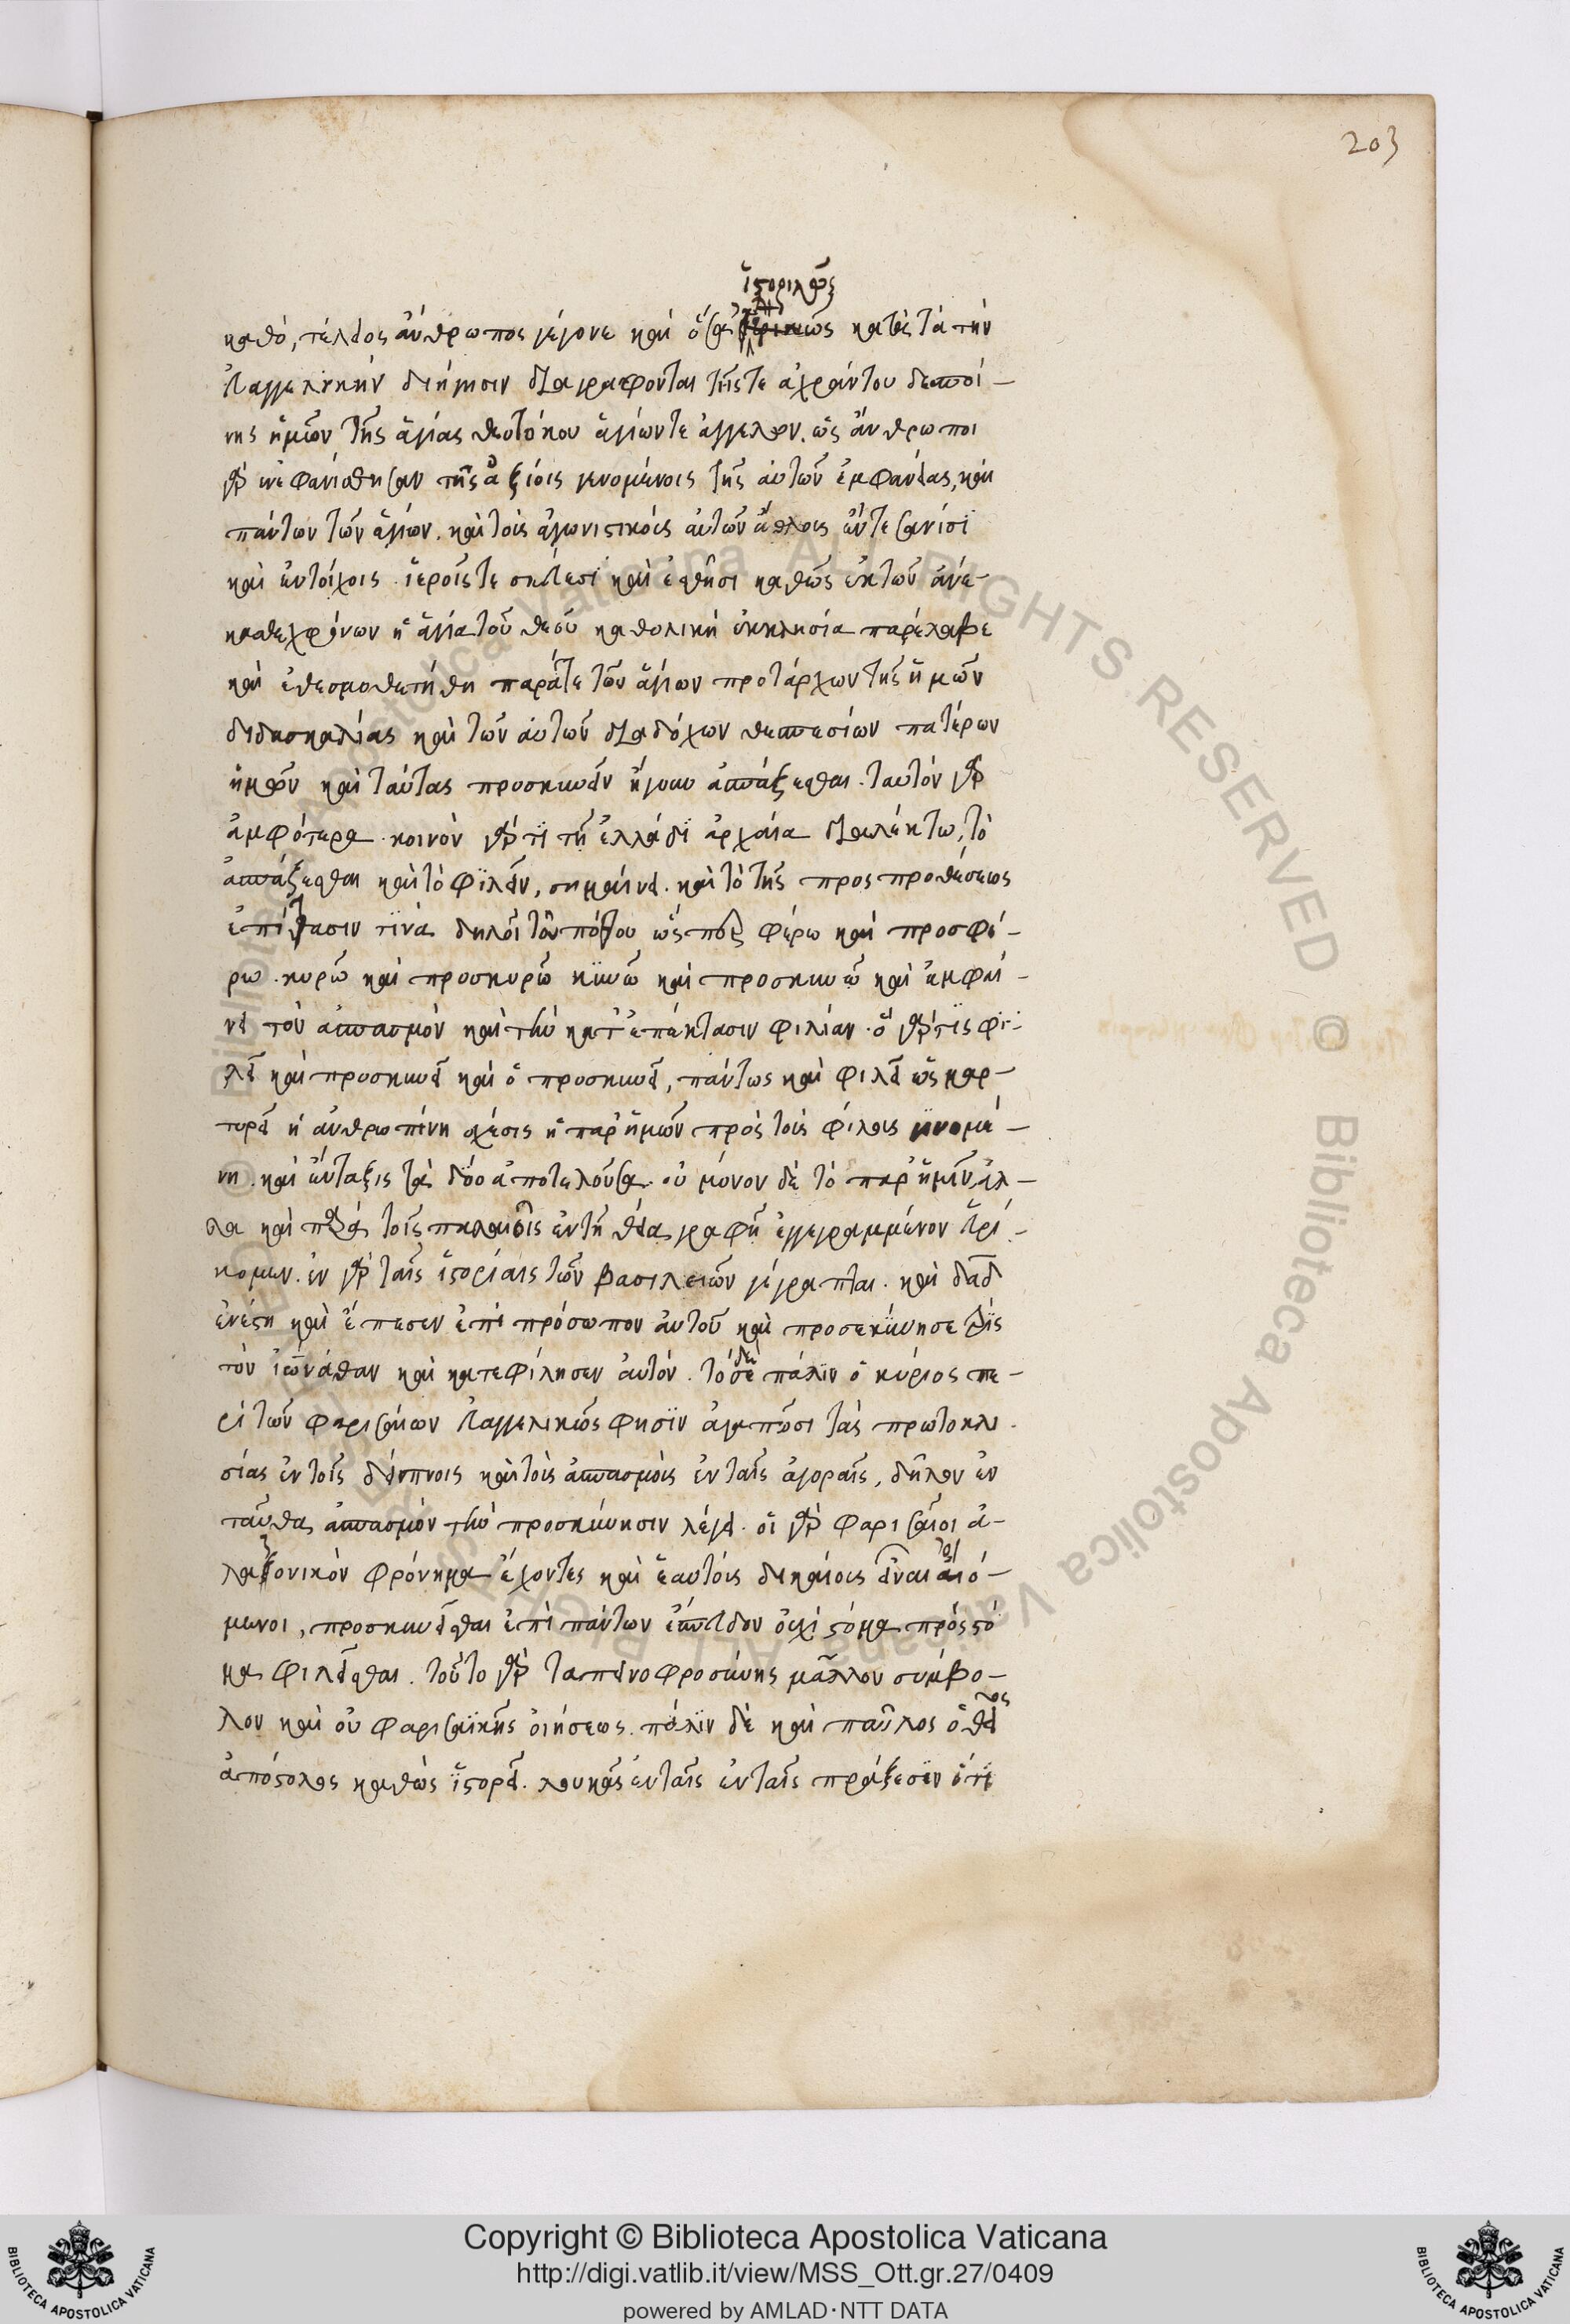 203
ἱστορικῶς
καθὸ, τέλειος ἄνθρωπος γέγονε καὶ ὅσα κατὰ τὴν
εὐαγγελικὴν διήγησιν διαγράφονται τῆς τε ἀχράντου δεσποί-
νης ἡμῶν τῆς ἁγίας θεοτόκου ἁγίων τε ἀγγέλων. ὡς ἄνθρωποι
γὰρ ἐνεφανίσθησαν τοῖς ἀξίοις γενομένοις τῆς αὐτῶν ἐμφανείας, καὶ
πάντων τῶν ἁγίων. καὶ τοὺς ἀγωνιστικοὺς αὐτῶν ἄθλους ἔν τε σανίσι
καὶ ἐν τοίχοις ἱεροῖς τε σκεύεσι καὶ ἐσθῆσι καθὼς ἐκ τῶν ἀνέ-
καθεν χρόνων ἡ ἁγία τοῦ θεοῦ καθολικὴ ἐκκλησία παρέλαβε
καὶ ἐθεσμοθετήθη παρά τε τῶν ἁγίων πρωτάρχων τῆς ἡμῶν
διδασκαλίας καὶ τῶν αὐτῶν διαδόχων θεσπεσίων πατέρων
ἡμῶν καὶ ταύτας προσκυνεῖν ἤγουν ἀσπάζεσθαι. ταυτὸν γὰρ
ἀμφότερα. κοινὸν γάρ τι τῇ ἑλλάδι ἀρχαία διαλέκτω, τὸ
ἀσπάζεσθαι καὶ τὸ φιλεῖν, σημαίνει. καὶ τὸ τῆς προς προθέσεως
ἐπίτασιν τινὰ δηλοῖ τοῦ πόθου ὥσπερ φέρω καὶ προσφέ-
ρω. κυρῶ καὶ προσκυρῶ κυνῶ καὶ προσκυνῶ καὶ ἐμφαί-
νει τὸν ἀσπασμὸν καὶ τὴν κατ' ἐπέκτασιν φιλίαν. ὃ γάρ τις φι-
λεῖ καὶ προσκυνεῖ καὶ ὃ προσκυνεῖ, πάντως καὶ φιλεῖ ὡς μαρ-
τυρεῖ ἡ ἀνθρωπίνη σχέσις ἡ παρ' ἡμῶν πρὸς τοὺς φίλους γινομέ-
νη. καὶ ἔνταξις τὰ δύο ἀποτελοῦσα. οὐ μόνον δὲ τὸ παρ' ἡμῖν, ἀλ-
λα καὶ παρὰ τοῖς παλαιοῖς ἐν τῇ θεία γραφῇ ἐγγεγραμμένον εὑρί-
κομεν. ἐν γὰρ ταῖς ἱστορίαις τῶν βασιλειῶν γέγραπται. καὶ δαδ
ἐνέστη καὶ ἔπεσεν ἐπὶ πρόσωπον αὐτοῦ καὶ προσεκύνησε τρὶς
τὸν ἰωνάθαν καὶ κατεφίλησεν αὐτόν. τὸ δὲ πάλιν ὁ κύριος πε-
ρὶ τῶν φαρισαίων εὐαγγελικῶς φησὶν ἀγαπῶσι τὰς πρωτοκλι-
σίας ἐν τοῖς δείπνοις καὶ τοὺς ἀσπασμοὺς ἐν ταῖς ἀγοραῖς, δῆλον ἐν
ταῦθα ἀσπασμὸν τὴν προσκύνησιν λέγει. οἱ γὰρ φαρισαῖοι ἀ-
λαζονικὸν φρόνημα ἔχοντες καὶ ἑαυτοὺς δικαίους εἶναι οἰό-
μενοι, προσκυνεῖσθαι ἐπὶ πάντων ἔσπευδον οὐχὶ στόμα πρὸς στό
μα φιλεῖσθαι. τοῦτο γὰρ ταπεινοφροσύνης μᾶλλον σύμβο-
λον καὶ οὐ φαρισαϊκῆς οἰήσεως. πάλιν δὲ καὶ παῦλος ὁ θεῖος
ἀπόστολος καθὼς ἱστορεῖ. λουκᾶς ἐν ταῖς ἐν ταῖς πράξεσιν ὅτι
Copyright © Biblioteca Apostolica Vaticana
http://digi.vatlib.it/view/MSS_Ott.gr.27/0409
powered by AMLAD·NTT DATA